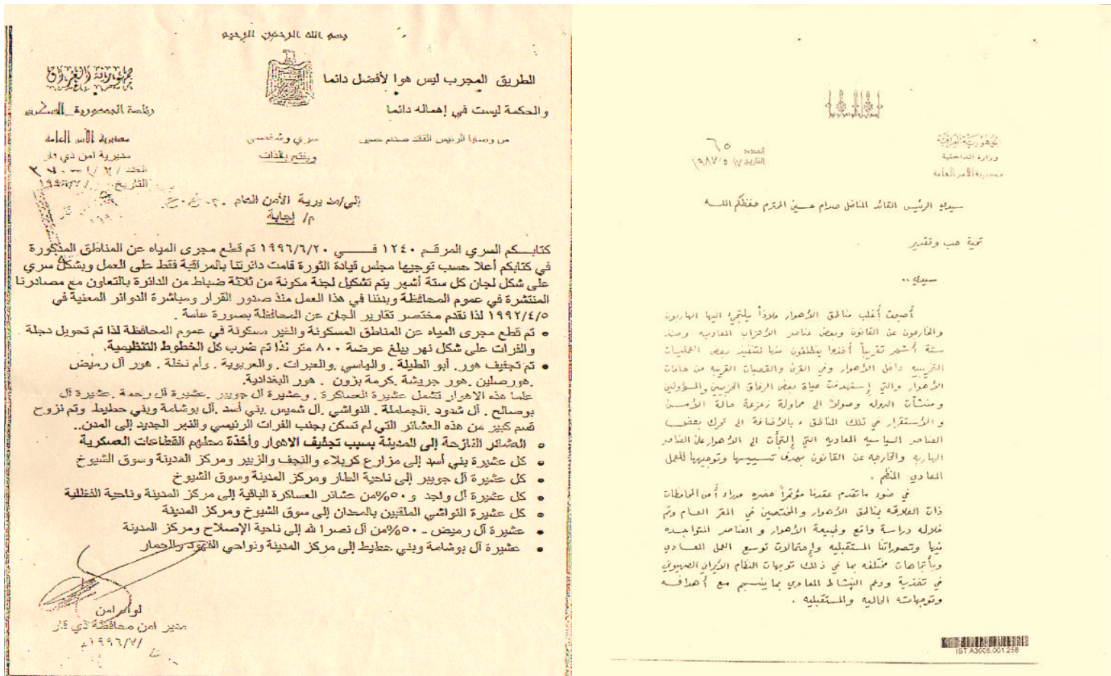 بسم الله الرحمن الرحيم
جمهورية العراق
رئاسة الجمهورية ـ السكرتير
مديرية الأمن العامة
مديرية امن ذي قار
العدد /
التاريخ
الطريق المجرب ليس هوا لأفضل دائما
والحكمة ليست في إهماله دائما
من وصايا الرئيس القائد صدام حسين
سري وشخصي
إلى/مديرية الأمن العام
م/ إجابة
كتابكم السري المرقم ١٢٤٠ فـــي ١٩٩٦/٦/٢٠ تم قطع مجرى المياه عن المناطق المذكورة
في كتابكم أعلا حسب توجيها مجلس قيادة الثورة قامت دائرتنا بالمراقبة فقط على العمل وبشكل سري
على شكل لجان كل ستة أشهر يتم تشكيل لجنة مكونة من ثلاثة ضباط من الدائرة بالتعاون مع مصادرنا
المنتشرة في عموم المحافظة وبدئنا في هذا العمل منذ صدور القرار ومباشرة الدوائر المعنية في
١٩٩٢/٤/٥ لذا نقدم مختصر تقارير الجان عن المحافظة بصورة عامة .
• تم قطع مجرى المياه عن المناطق المسكونة والغير مسكونة في عموم المحافظة لذا تم تحويل دجلة
والفرات على شكل نهر يبلغ عرضة ٨٠٠ متر لذا تم ضرب كل الخطوط التنظيمية.
• تم تجفيف هور. أبو الطيلة . والهاسي .والعبرات . والعريوية . وأم نخلة . هور آل رميض
.هورصلين. هور جريشة .كرمة بزون . هور البغدادية.
علما هذه الاهوار تشمل عشيرة العساكرة . وعشيرة آل جويبر .عشيرة آل رحمة .عشيرة آل
بوصالح . آل شدود .الجماملة . النواشي .آل شميس .بني أسد .آل بوشامة وبني حطيط وتم نزوح
قسم كبير من هذه العشائر التي لم تسكن بجنب الفرات الرئيسي والنهر الجديد إلى المدن..
• العشائر النازحة إلى المدينة بسبب تجفيف الاهوار وأخذة معظهم القطاعات العسكرية
• كل عشيرة بني أسد إلى مزارع كربلاء والنجف والزبير ومركز المدينة وسوق الشيوخ
• كل عشيرة آل جويبر إلى ناحية الطار ومركز المدينة وسوق الشيوخ
• كل عشيرة آل واجد و ٥٠%من عشائر العساكرة الباقية إلى مركز المدينة وناحية الفضلية
• كل عشيرة النواشي الملقبين بالمعدان إلى سوق الشيوخ ومركز المدينة
• عشيرة آل رميض ـ ٥٠%من آل نصر الله إلى ناحية الإصلاح ومركز المدينة
• عشيرة آل بوشامة وبني حطيط إلى مركز المدينة ونواحي الفهود والحمار
لواء امن
مدير امن محافظة ذي قار
/١٩٩٦/٧
الجمهورية العراقية
وزارة الداخلية
مديرية الأمن العامة
العدد ٦٥
التاريخ
سيدي الرئيس القائد المناضل صدام حسين المحترم حفظكم اللــه
تحية حب وتقدير
سيدي ..
أصبحت أغلب مناطق الأهوار ملاذاً يلتجئ إليها الهاربون
والخارجون عن القانون وبعض عناصر الأحزاب المعاديه ومنذ
ستة أشهر تقريباً أخذوا ينطلقون منها لتنفيذ بعض العمليات
التخريبيه داخل الأهوار وفي القرى والقصبات القريبه من حافات
الأهوار والتي إستهدفت حياة بعض الرفاق الحزبيين والمسؤولين
ومنشآت الدوله وصولاً الى محاولة زعزعة حالة الأمــن
والأستقرار في تلك المناطق ، بالأضافة الى تحرك بعض
العناصر السياسيه المعاديه التي إلتجأت الى الأهوار على العناصر
الهاربه والخارجه عن القانون بهدف تسييسها وتوجيهها للعمل
المعادي المنظم .
في ضوء ماتقدم عقدنا مؤتمراً حضره مدراء أمن المحافظات
ذات العلاقه بمناطق الأهوار والمختصين في المقر العام وتم
خلاله دراسة واقع وطبيعة الأهوار والعناصر المتواجده
فيها وتصوراتنا المستقبليه وإحتمالات توسيع العمل المعــادي
وبأتجاهات مختلفه بما في ذلك توجهات النظام الأيراني الصهيوني
في تغذية ودعم النشاط المعادي بما ينسجم مع أهدافــه
وتوجهاته الحاليه والمستقبليه .
IST A3005.001.258